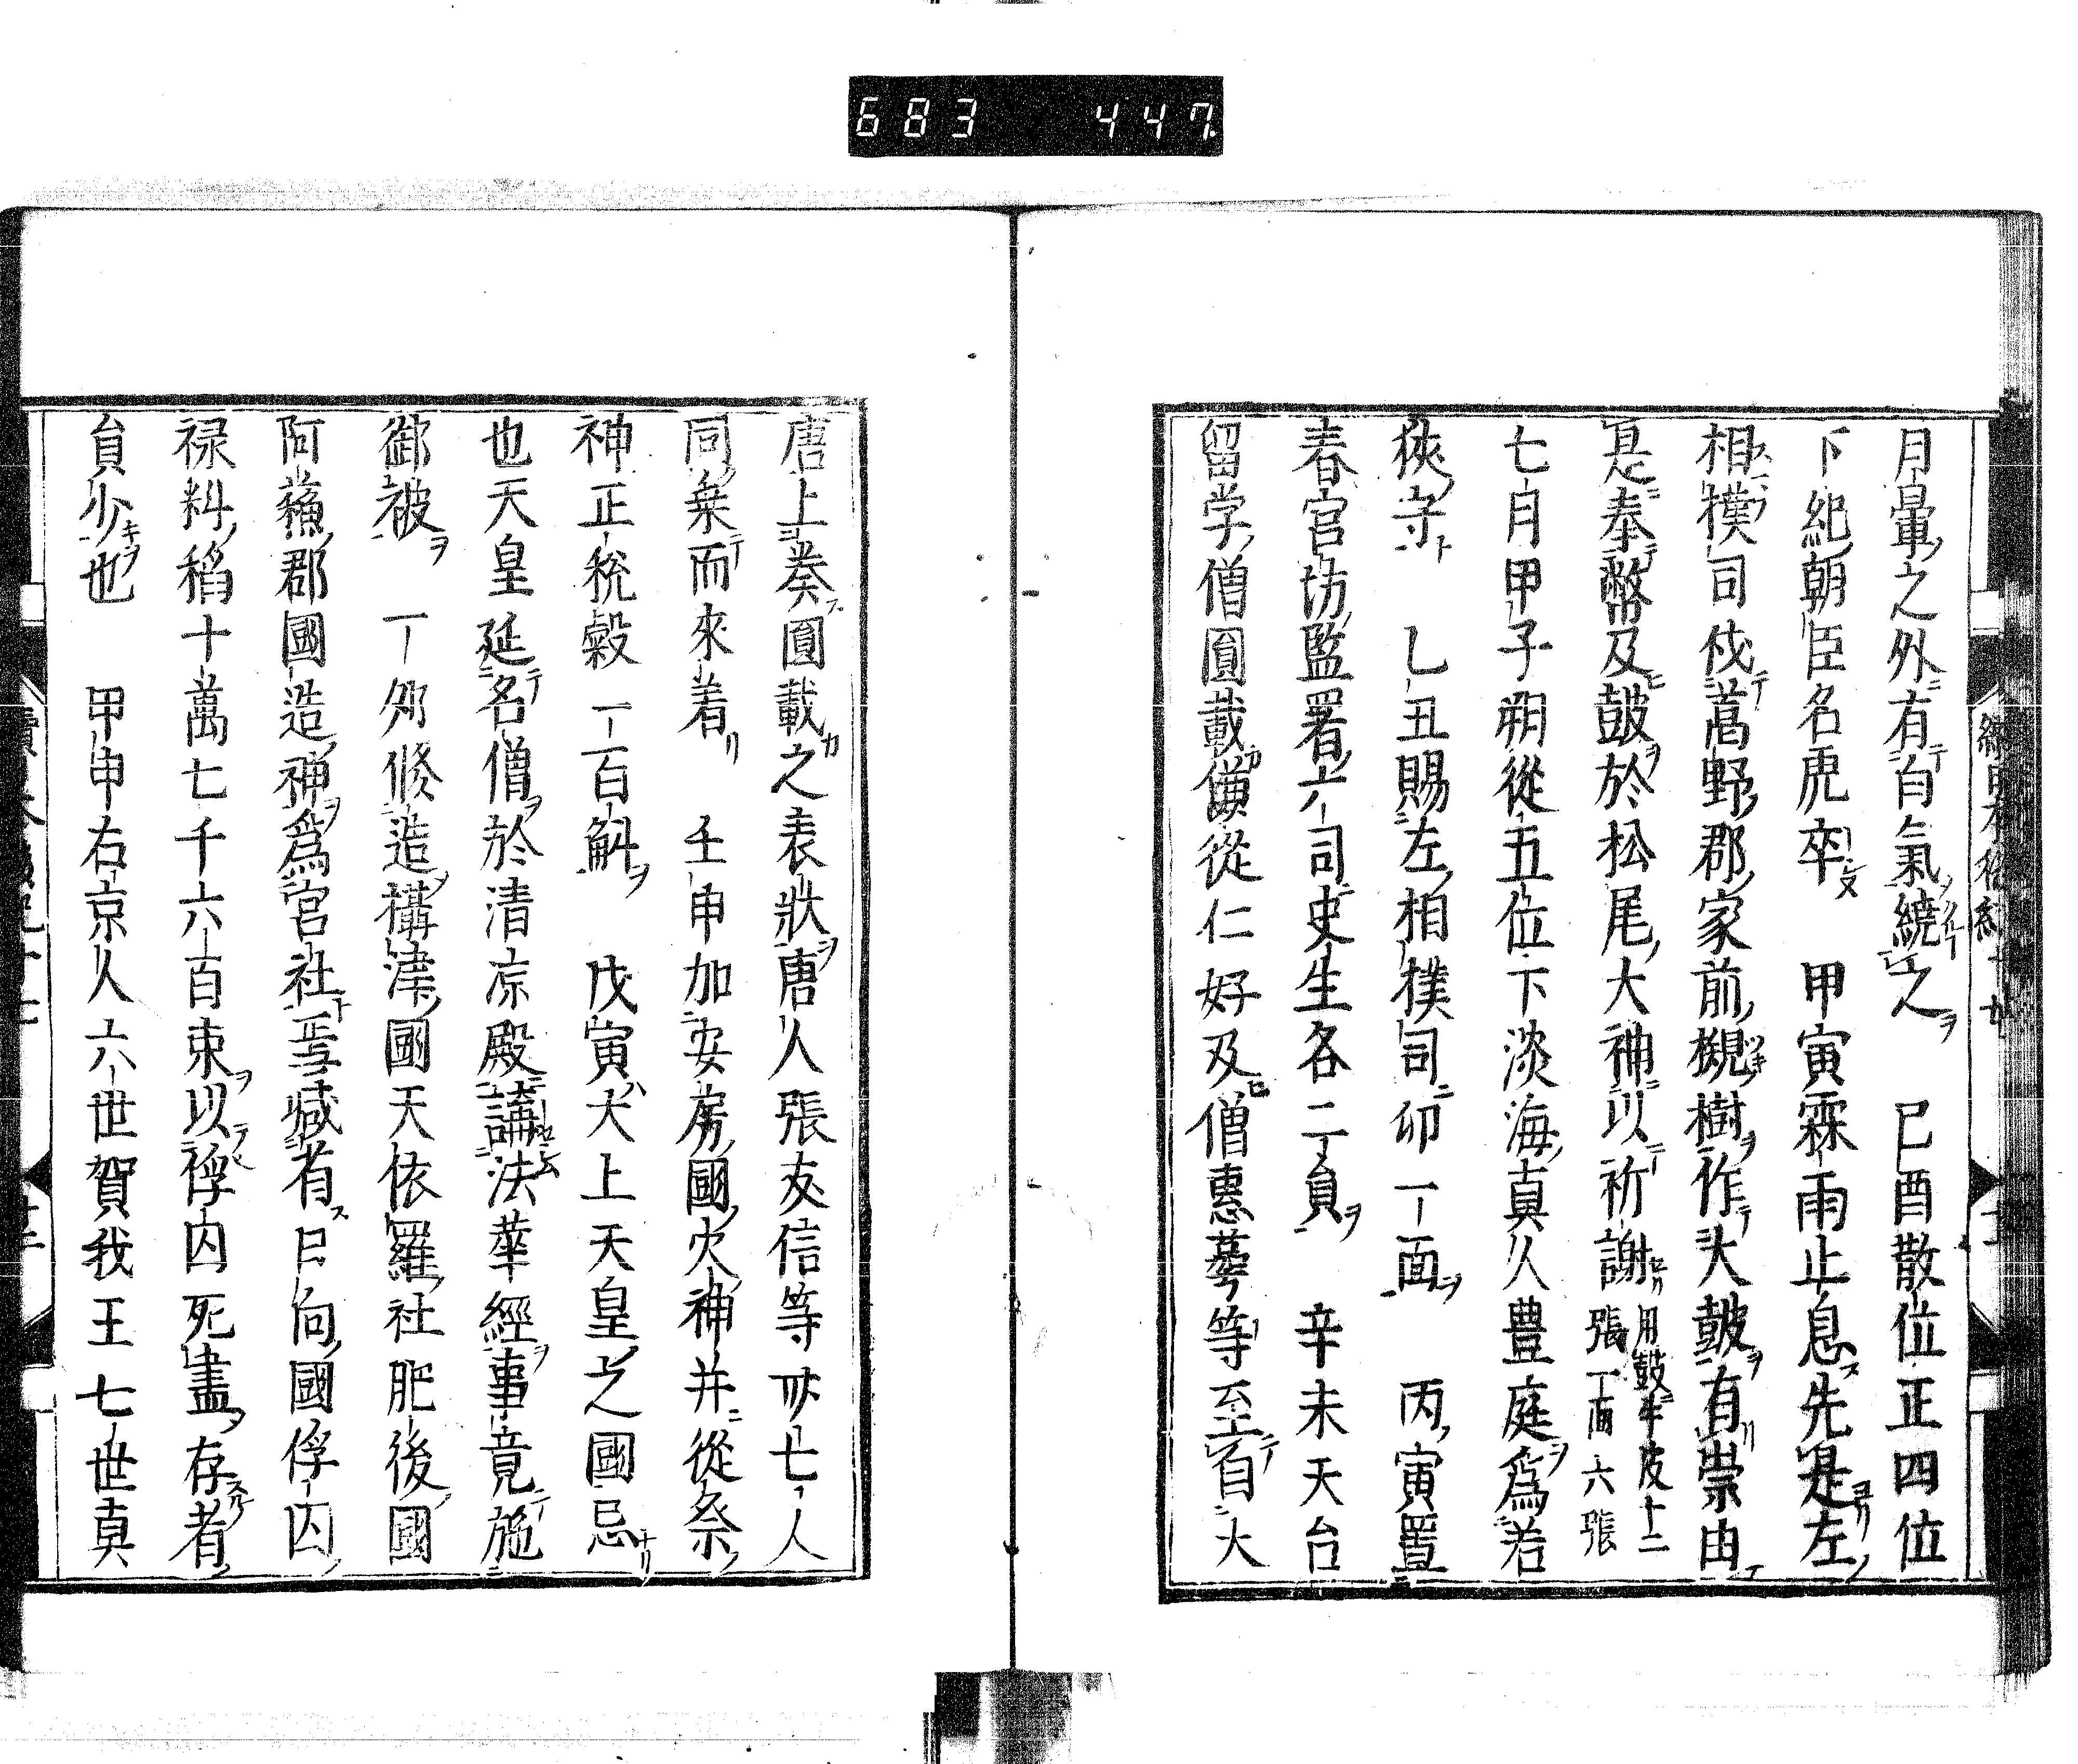 683 447
月暈之外有白氣繞之 已酉散位正四位
下紀朝臣名虎卒 甲寅霖雨止息先是左
相撲司伐葛野郡家前槻樹作大皷有崇由
是奉幣及皷於松尾大神以祈謝用皷牛皮十二張一面六張
七月甲子朔從五位下淡海真人豊庭爲若
狹守 乙丑賜左相撲司印一面 丙寅置
春宮坊監署六司史生各二員 辛未天台
留学僧圓載傔從仁好及僧惠蕚等至自大
唐上奏圓載之表狀唐人張友信等卌七人
同乗而來着 壬申加安房國火神并從祭
神正税穀一百斛 戊寅太上天皇之國忌
也天皇延名僧於清凉殿講法華經事竟施
御被 丁夘修造攝津國天依羅社肥後國
阿蘇郡國造神爲宮社焉緘有日向國俘囚
禄料稻十萬七千六百束以俘囚死盡存者
員少也 甲申右京人六世賀我王七世真